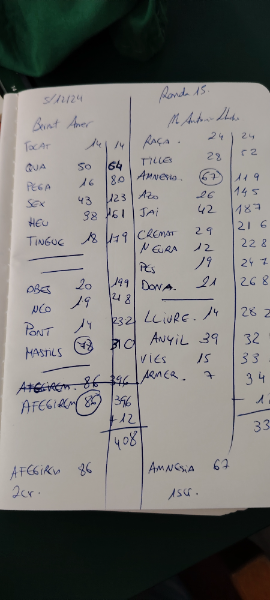 5/12/24
Ronda 15.
TOCAT 14 14
QUA 50 64
PEGA 16 80
SEX 43 123
HEU 38 161
TINGUE 18 179
OBES 20 199
NEO 19 218
PONT 14 232
MASTILS 78 310
AFEGIREM. 86 396
AFEGIREM 86 396
+12
408
AFEGIREM 86
2cr.
RAÇA. 24 24
TILLEI 28 52
AMNESIA. 67 119
AZO 26 145
JAI 42 187
CREMAT 29 216
NEURA 12 228
PES 19 247
DONA. 21 268
LLIURE. 14 282
ANYIL 39 32
VIES 15 33
ARMER. 7 34
- 1
33
AMNESIA 67